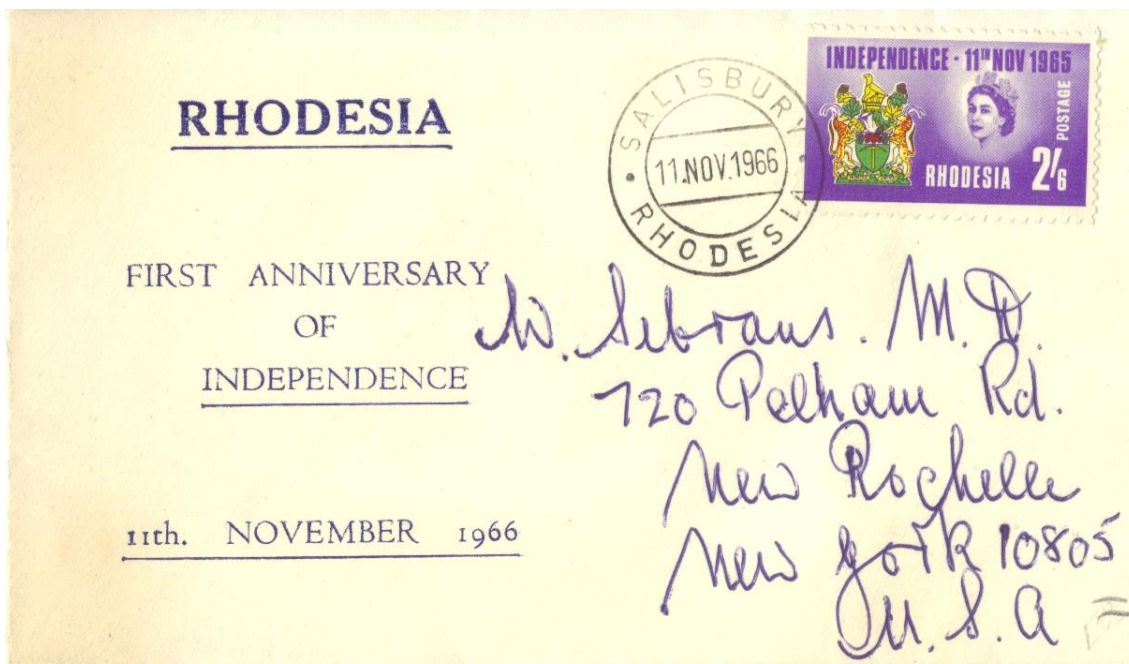 RHODESIA
FIRST ANNIVERSARY
OF
INDEPENDENCE
11th. NOVEMBER 1966
SALISBURY
11.NOV.1966
RHODESIA
INDEPENDENCE · 11TH NOV 1965
POSTAGE
RHODESIA 2/6
W. Sebrans. M.D.
720 Pelham Rd.
New Rochelle
New York 10805
U.S.A